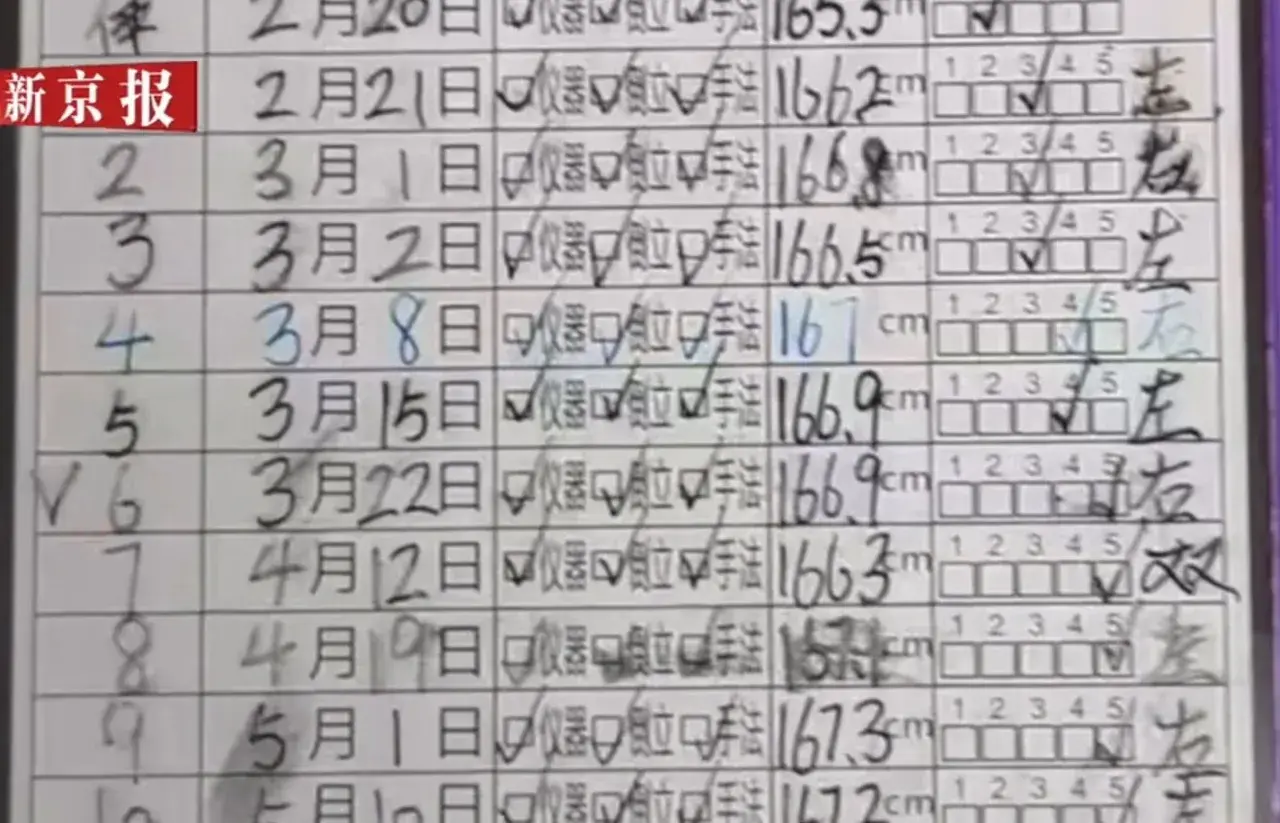 体 2月20日 仪器 复位 手法 165.5cm
新京报
2月21日 仪器 复位 手法 166.2cm 1 2 3 4 5 左
2 3月1日 仪器 复位 手法 166.8cm 1 2 3 4 5 右
3 3月2日 仪器 复位 手法 166.5cm 1 2 3 4 5 左
4 3月8日 仪器 复位 手法 167cm 1 2 3 4 5 右
5 3月15日 仪器 复位 手法 166.9cm 1 2 3 4 5 左
6 3月22日 仪器 复位 手法 166.9cm 1 2 3 4 5 右
7 4月12日 仪器 复位 手法 166.3cm 1 2 3 4 5 双
8 4月19日 仪器 复位 手法 cm 1 2 3 4 5 左
9 5月1日 仪器 复位 手法 167.3cm 1 2 3 4 5 右
10 5月10日 仪器 复位 手法 167.2cm 1 2 3 4 5 左